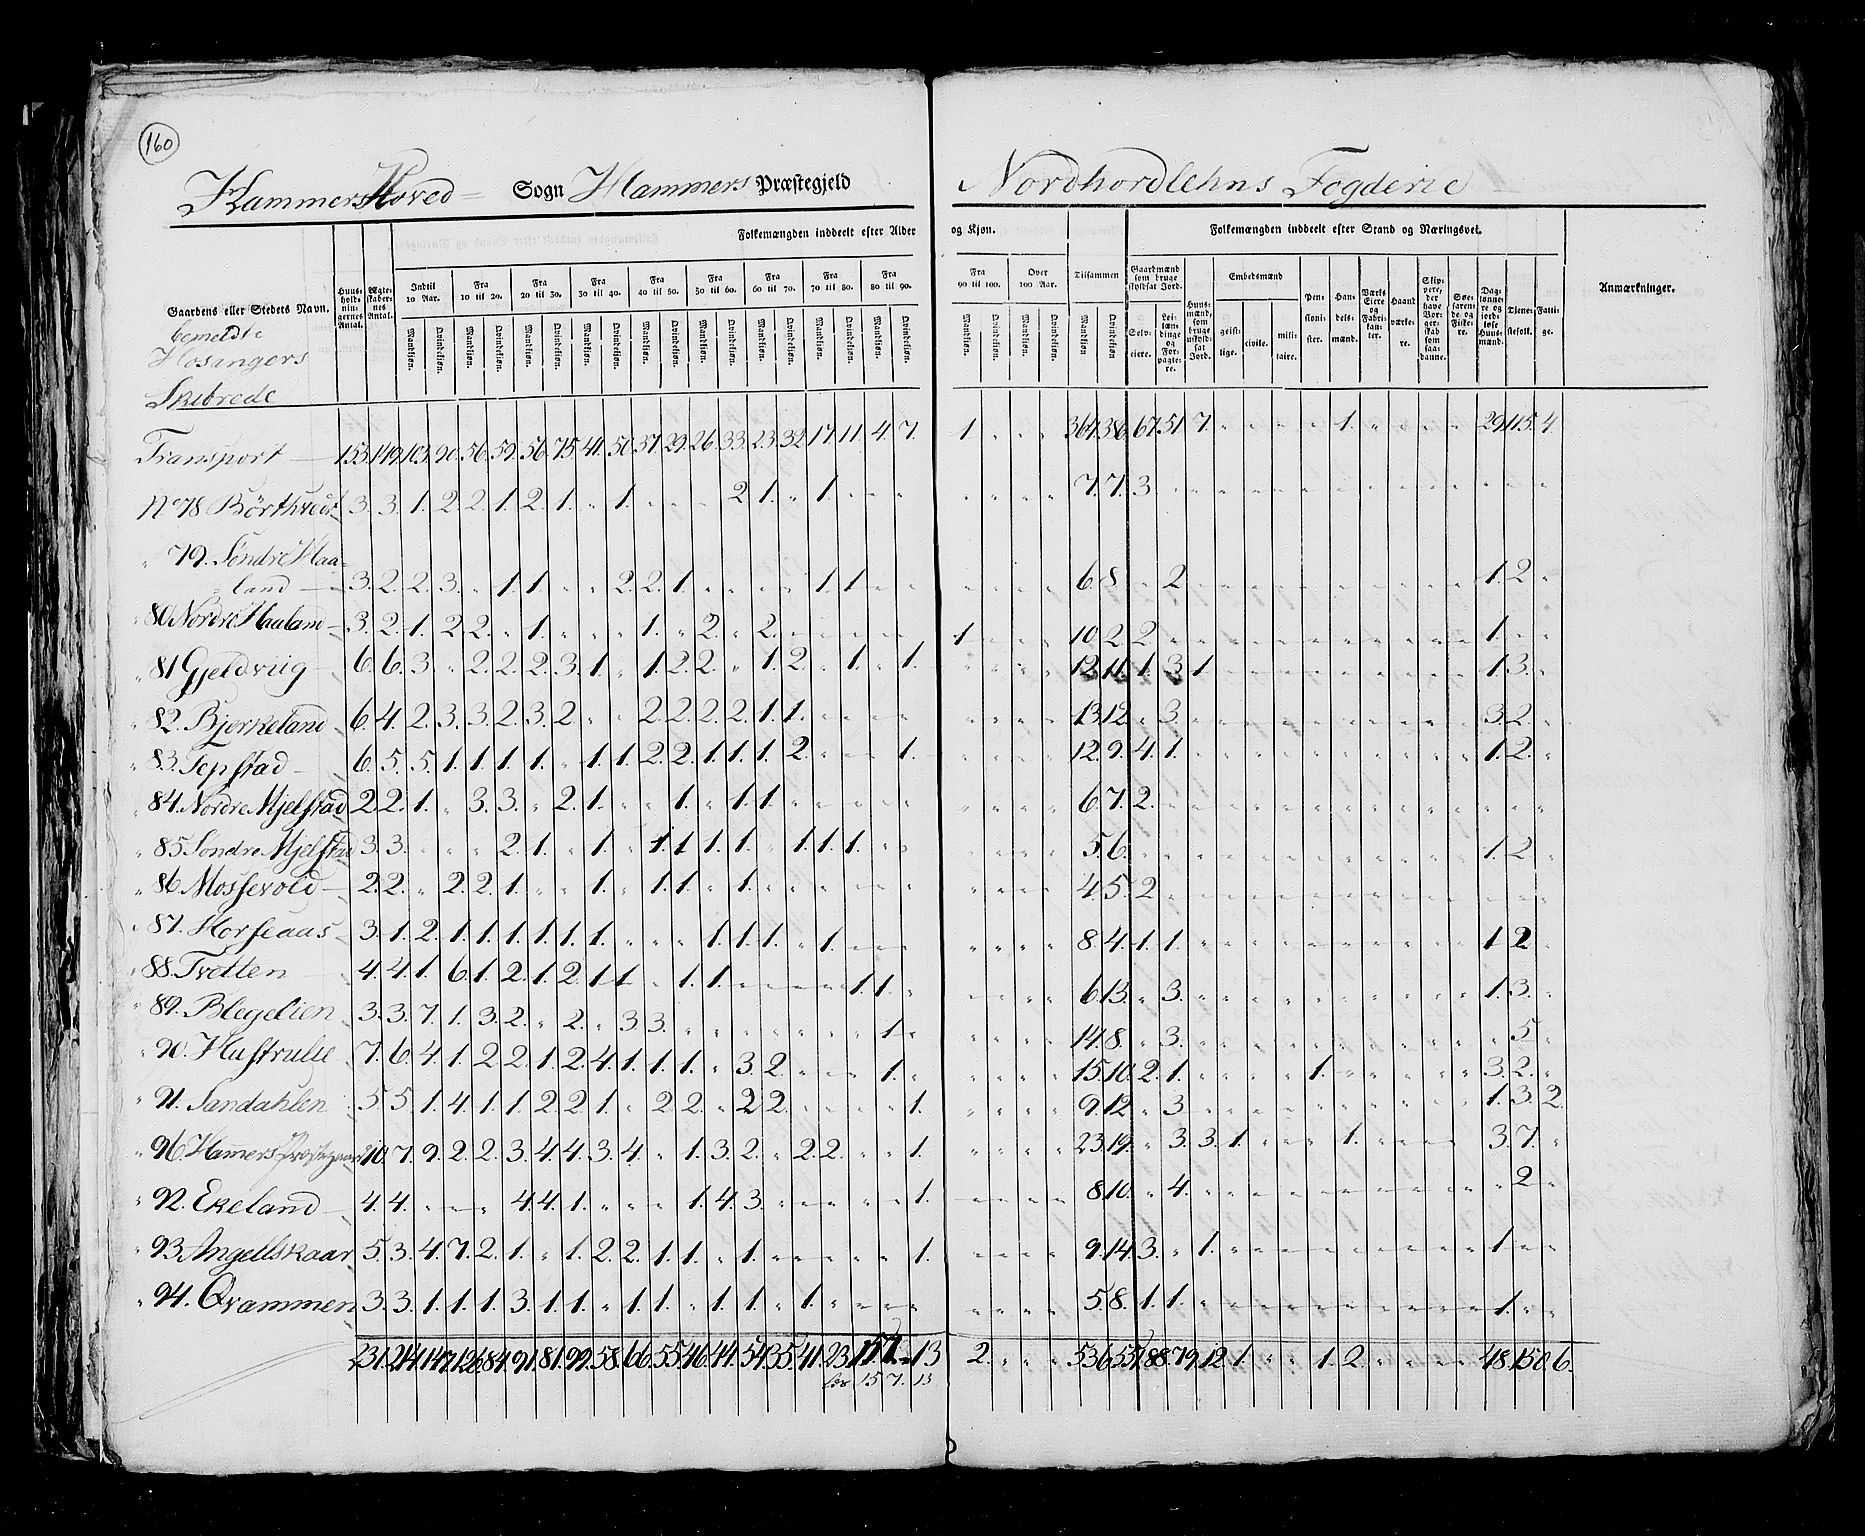 160
Hammers Hoved Sogn Hammers Præstegjeld Nordhordlehns Fogderie
Folkemængden inddeelt efter Alder og Kjøn. Folkemængden inddeelt efter Stand og Næringsvei.
Gaardens eller Stedets Navn. Huusholdningernes Antal. Ægteskabernes Antal. Indtil 10 Aar. Fra 10 til 20. Fra 20 til 30. Fra 30 til 40. Fra 40 til 50. Fra 50 til 60. Fra 60 til 70. Fra 70 til 80. Fra 80 til 90. Fra 90 til 100. Over 100 Aar. Tilsammen Gaardmænd som bruge skyldsat Jord. Huusmænd, som bruge uskyldsat Jord. Embedsmænd Pensionister. Handelsmænd. Værks Eiere og Fabrikanter. Haandværkere. Skippere, der have Borgerskab som saadanne. Søefarende og Fiskere. Daglønnere og jordløse Huusmænd. Tjenestefolk. Fattige. Anmærkninger.
Mandkjøn. Qvindekjøn. Mandkjøn. Qvindekjøn. Mandkjøn. Qvindekjøn. Mandkjøn. Qvindekjøn. Mandkjøn. Qvindekjøn. Mandkjøn. Qvindekjøn. Mandkjøn. Qvindekjøn. Mandkjøn. Qvindekjøn. Mandkjøn. Qvindekjøn. Mandkjøn. Qvindekjøn. Mandkjøn. Qvindekjøn. Mandkjøn Qvindekjøn Selveiere. Leilændinge og Forpagtere. geistlige. civile. militaire.
bemeldte
Hosangers
Skibrede
Transport 153. 149. 103. 90. 56. 59. 56. 75. 41. 50. 37. 29. 26. 33. 23. 32. 17. 11. 4. 7. 1 364. 386. 67. 51 7 1. 29. 115. 4
No 78 Börthvedt 3. 3. 1. 2. 2. 1. 2. 1. 1. 2. 1. 1. 7. 7. 3
79. Söndre Haa-
land 3. 2. 2. 3. 1. 1. 2. 2. 1. 1. 1. 6. 8. 2. 1. 2.
80 Nordre Haaland 3. 2. 1. 2. 2. 1. 1. 2. 2. 1. 10. 2. 2. 1.
81 Gjeldviig 6. 6. 3. 2. 2. 2. 3. 1. 1. 2. 2. 1. 2. 1. 1. 12. 11. 1. 3. 1 1. 3.
82. Bjørkeland 6. 4. 2. 3. 3. 2. 3. 2. 2. 2. 2. 2. 1. 1. 13. 12. 3. 3. 2.
83. Tepstad 6. 5. 5. 1. 1. 1. 1. 1. 1. 2. 2. 1. 1. 1. 2. 1. 12. 9. 4. 1. 1. 2.
84. Nordre Mjelstad 2. 2. 1. 3. 3. 2. 1. 1. 1. 1. 6. 7. 2.
85. Söndre Mjelstad 3. 3. 2. 1. 1. 1. 1. 1. 1. 1. 1. 1. 5. 6. 1. 2.
86. Mossevold 2. 2. 2. 2. 1. 1. 1. 1. 1. 4. 5. 2.
87. Horseaas 3. 1. 2. 1. 1. 1. 1. 1. 1. 1. 1. 1. 1. 8. 4. 1. 1. 1. 2
88. Tvetten 4. 4. 1. 6. 1. 2. 1. 2. 1. 1. 1. 1. 1. 1. 6. 13. 3. 1. 3.
89. Blegelien 3. 3. 7. 1. 3. 2. 2. 3. 3. 1. 14. 8. 3. 5.
90. Hustrulie 7. 6. 4. 1. 2. 2. 1. 2. 4. 1. 1. 1. 3. 2. 1. 15. 10. 2. 1. 1. 3. 2.
91. Sandahlen 5. 5. 1. 4. 1. 1. 2. 2. 1. 2. 2. 2. 2. 1. 9. 12. 3. 1. 3. 2.
96. Hammers Præstegaard 10. 7. 9. 2. 2. 3. 4. 4. 3. 4. 1. 3. 2. 2. 2. 1. 23. 19. 3. 3. 1. 1. 3. 7.
92. Ekeland 4. 4. 4. 4. 1. 1. 4. 3. 1. 8. 10. 4. 2
93. Angellskaar 5. 3. 4. 7. 2. 1. 1. 2. 2. 1. 1. 1. 1. 9. 14. 3. 1. 1.
94. Qvammen 3. 3. 1. 1. 1. 3. 1. 1. 1. 1. 1. 1. 1. 5. 8. 1. 1. 1.
231. 214. 147. 126. 84. 91. 81. 99. 58. 66. 55. 46. 44. 54. 35. 41. 23. 15 7. 13 2. 536. 88. 79. 12. 1. 1. 2. 48. 150. 6.
15 7. 13